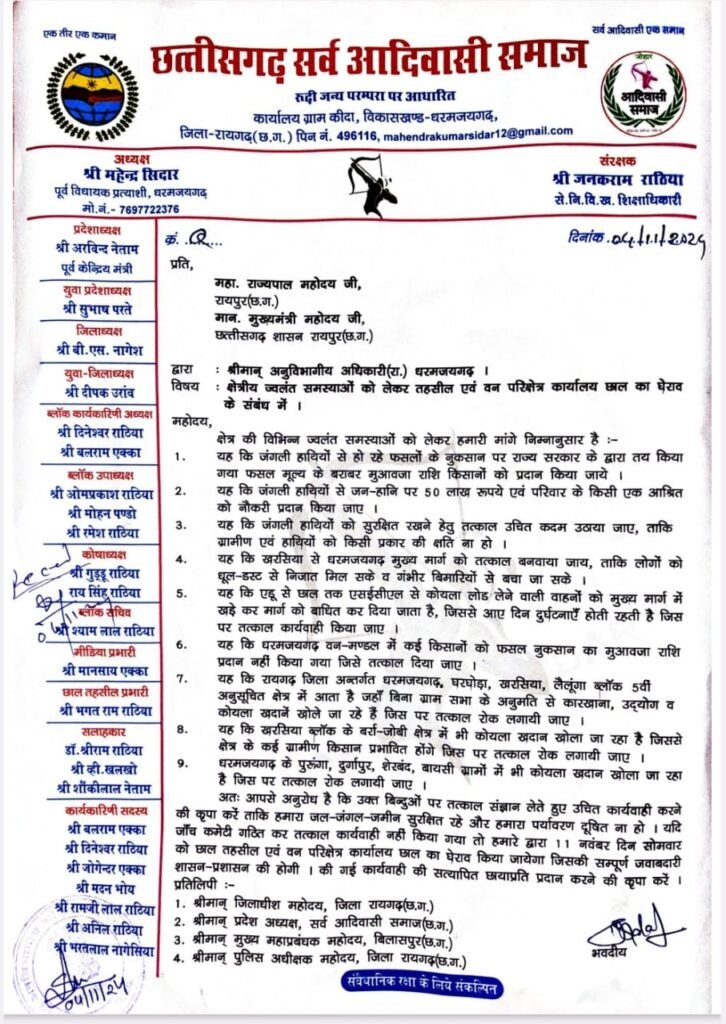 एक तीर एक कमान
सर्व आदिवासी एक समान
छत्तीसगढ़ सर्व आदिवासी समाज
रूढ़ी जन्य परम्परा पर आधारित
जोहार
आदिवासी
समाज
कार्यालय ग्राम कीदा, विकासखण्ड-धरमजयगढ़,
जिला-रायगढ़(छ.ग.) पिन नं. 496116, mahendrakumarsidar12@gmail.com
अध्यक्ष
श्री महेन्द्र सिदार
पूर्व विधायक प्रत्याशी, धरमजयगढ़
मो.नं.- 7697722376
संरक्षक
श्री जनकराम राठिया
से.नि.वि.ख. शिक्षाधिकारी
प्रदेशाध्यक्ष
श्री अरविन्द नेताम
पूर्व केन्द्रिय मंत्री
युवा प्रदेशाध्यक्ष
श्री सुभाष परते
जिलाध्यक्ष
श्री बी.एस. नागेश
युवा-जिलाध्यक्ष
श्री दीपक उरांव
ब्लॉक कार्यकारिणी अध्यक्ष
श्री दिनेश्वर राठिया
श्री बलराम एक्का
ब्लॉक उपाध्यक्ष
श्री ओमप्रकाश राठिया
श्री मोहन पण्डो
श्री रमेश राठिया
कोषाध्यक्ष
श्री गुड्डू राठिया
राय सिंह राठिया
ब्लॉक सचिव
श्री श्याम लाल राठिया
मीडिया प्रभारी
श्री मानसाय एक्का
छाल तहसील प्रभारी
श्री भगत राम राठिया
सलाहकार
डॉ.श्रीराम राठिया
श्री व्ही.खलखो
श्री शौंकीलाल नेताम
कार्यकारिणी सदस्य
श्री बलराम एक्का
श्री दिनेश्वर राठिया
श्री जोगेन्दर एक्का
श्री मदन भोय
श्री रामजी लाल राठिया
श्री अनिल राठिया
श्री भरतलाल नागेसिया
04/11/24
क्रं.
दिनांक.04/11/2024
प्रति,
महा. राज्यपाल महोदय जी,
रायपुर(छ.ग.)
मान. मुख्यमंत्री महोदय जी,
छत्तीसगढ़ शासन रायपुर(छ.ग.)
द्वारा : श्रीमान् अनुविभागीय अधिकारी(रा.) धरमजयगढ़ ।
विषय : क्षेत्रीय ज्वलंत समस्याओं को लेकर तहसील एवं वन परिक्षेत्र कार्यालय छाल का घेराव
के संबंध में ।
महोदय,
क्षेत्र की विभिन्न ज्वलंत समस्याओं को लेकर हमारी मांगे निम्नानुसार है :-
1. यह कि जंगली हाथियों से हो रहे फसलों के नुकसान पर राज्य सरकार के द्वारा तय किया
गया फसल मूल्य के बराबर मुआवजा राशि किसानों को प्रदान किया जाये ।
2. यह कि जंगली हाथियों से जन-हानि पर 50 लाख रूपये एवं परिवार के किसी एक आश्रित
को नौकरी प्रदान किया जाए ।
3. यह कि जंगली हाथियों को सुरक्षित रखने हेतु तत्काल उचित कदम उठाया जाए, ताकि
ग्रामीण एवं हाथियों को किसी प्रकार की क्षति ना हो ।
4. यह कि खरसिया से धरमजयगढ़ मुख्य मार्ग को तत्काल बनवाया जाय, ताकि लोगों को
धूल-डस्ट से निजात मिल सके व गंभीर बिमारियों से बचा जा सके ।
5. यह कि एडू से छाल तक एसईसीएल से कोयला लोड लेने वाली वाहनों को मुख्य मार्ग में
खड़े कर मार्ग को बाधित कर दिया जाता है, जिससे आए दिन दुर्घटनाएँ होती रहती है जिस
पर तत्काल कार्यवाही किया जाए ।
6. यह कि धरमजयगढ़ वन-मण्डल में कई किसानों को फसल नुकसान का मुआवजा राशि
प्रदान नहीं किया गया जिसे तत्काल दिया जाए ।
7. यह कि रायगढ़ जिला अन्तर्गत धरमजयगढ़, घरघोड़ा, खरसिया, लैलूंगा ब्लॉक 5वीं
अनुसूचित क्षेत्र में आता है जहाँ बिना ग्राम सभा के अनुमति से कारखाना, उद्योग व
कोयला खदानें खोले जा रहे हैं जिस पर तत्काल रोक लगायी जाए ।
8. यह कि खरसिया ब्लॉक के बर्रा-जोबी क्षेत्र में भी कोयला खदान खोला जा रहा है जिससे
क्षेत्र के कई ग्रामीण किसान प्रभावित होंगे जिस पर तत्काल रोक लगायी जाए ।
9. धरमजयगढ़ के पुरूंगा, दुर्गापुर, शेरबंद, बायसी ग्रामों में भी कोयला खदान खोला जा रहा
है जिस पर तत्काल रोक लगायी जाए ।
अतः आपसे अनुरोध है कि उक्त बिन्दुओं पर तत्काल संज्ञान लेते हुए उचित कार्यवाही करने
की कृपा करें ताकि हमारा जल-जंगल-जमीन सुरक्षित रहे और हमारा पर्यावरण दूषित ना हो । यदि
जाँच कमेटी गठित कर तत्काल कार्यवाही नहीं किया गया तो हमारे द्वारा 11 नवंबर दिन सोमवार
को छाल तहसील एवं वन परिक्षेत्र कार्यालय छाल का घेराव किया जायेगा जिसकी सम्पूर्ण जवाबदारी
शासन-प्रशासन की होगी । की गई कार्यवाही की सत्यापित छायाप्रति प्रदान करने की कृपा करें ।
प्रतिलिपी :-
1. श्रीमान् जिलाधीश महोदय, जिला रायगढ़(छ.ग.)
2. श्रीमान् प्रदेश अध्यक्ष, सर्व आदिवासी समाज(छ.ग.)
3. श्रीमान् मुख्य महाप्रबंधक महोदय, बिलासपुर(छ.ग.)
4. श्रीमान् पुलिस अधीक्षक महोदय, जिला रायगढ़(छ.ग.)
भवदीय
संवैधानिक रक्षा के लिये संकल्पित